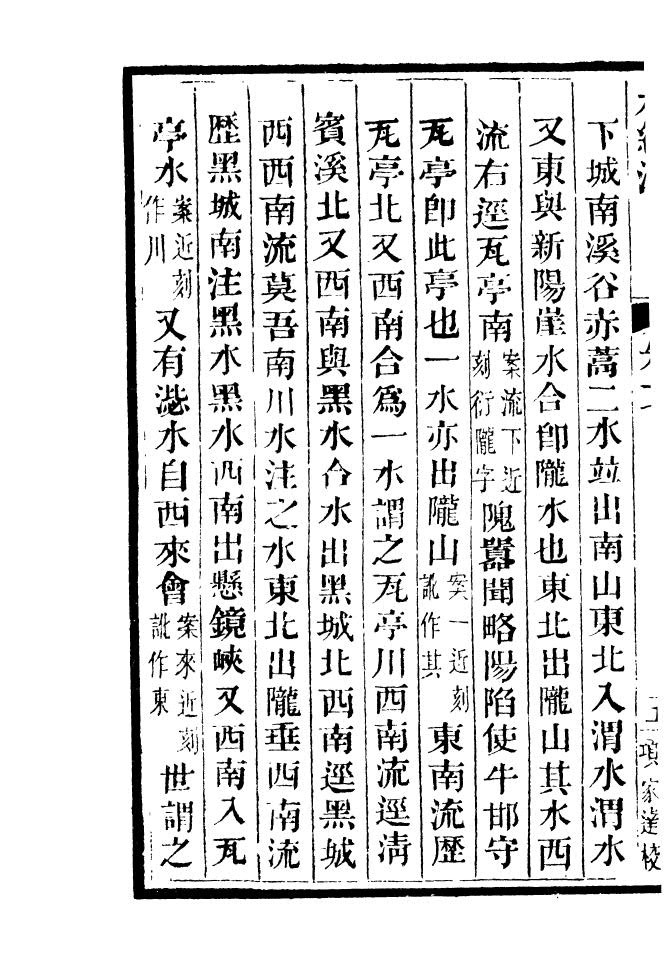 下城南溪谷赤蒿二水並出南山東北入渭水渭水
又東與新陽崖水合卽隴水也東北出隴山其水西
流右逕瓦亭南案流下近刻衍隴字隗囂聞略陽陷使牛邯守
瓦亭卽此亭也一水亦出隴山案一近刻訛作其東南流歷
瓦亭北又西南合爲一水謂之瓦亭川西南流逕清
賓溪北又西南與黑水合水出黑城北西南逕黑城
西西南流莫吾南川水注之水東北出隴垂西南流
歷黑城南注黑水黑水西南出懸鏡峽又西南入瓦
亭水案近刻作川又有澨水自西來會案來近刻訛作東世謂之
項家達校